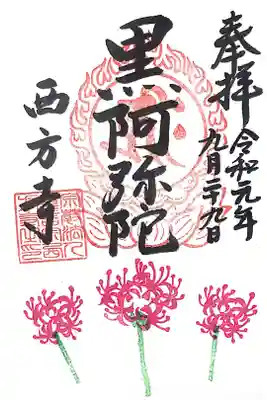 奉拝
令和元年
九月二十九日
黒阿弥陀
西方寺